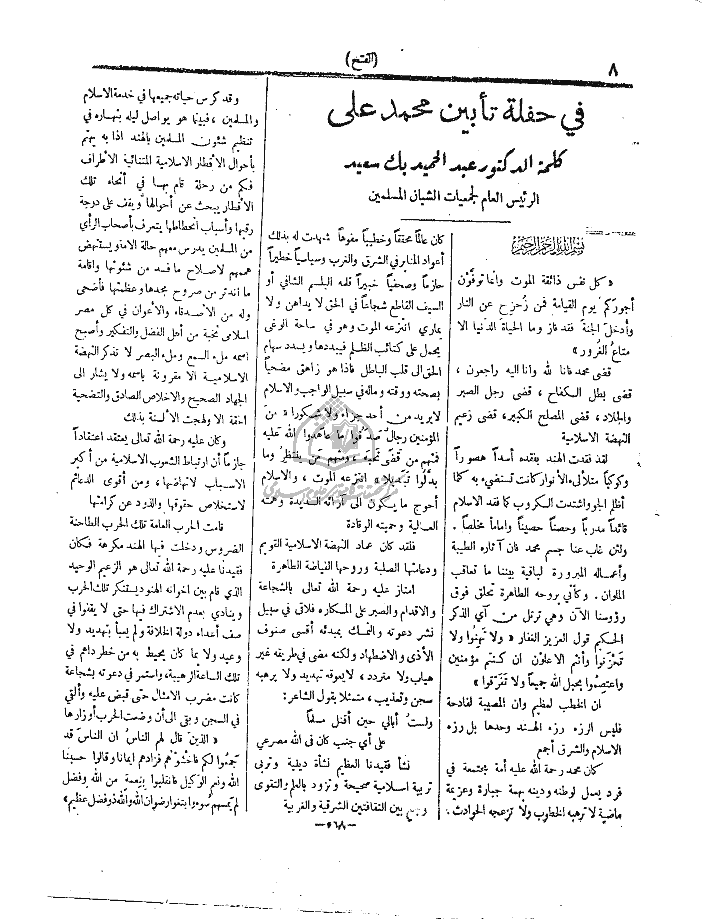 ٨
(الفتح)
في حفلة تأبين محمد على
كلمة الدكتور عبد الحميد بك سعيد
الرئيس العام لجمعيات الشبان المسلمين
بسم الله الرحمن الرحيم
« كل نفس ذائقة الموت وإنما توفَّوْن
أجوركم يوم القيامة فمن زُحزِح عن النار
وأُدخل الجنة فقد فاز وما الحياة الدنيا الا
متاع الغُرور »
قضى محمد فانا لله وانا اليه راجعون ،
قضى بطل الكفاح ، قضى رجل الصبر
والجلاد ، قضى المصلح الكبير ، قضى زعيم
النهضة الاسلامية
لقد فقدت الهند بفقده أسداً هصوراً
وكوكباً متلألئ الأنوار كانت تستضيء به كلما
أظلم الجو واشتدت الكروب كما فقد الاسلام
قائداً مدرباً وحصناً حصيناً واماماً مخلصاً .
ولئن غاب عنا جسم محمد فان آثاره الطيبة
وأعماله المبرورة لباقية بيننا ما تعاقب
الملوان . وكأني بروحه الطاهرة تحلق فوق
رؤوسنا الآن وهي ترتل من آي الذكر
الحكيم قول العزيز الغفار « ولا تهنوا ولا
تحزنوا وأنتم الاعلون ان كنتم مؤمنين
واعتصموا بحبل الله جميعاً ولا تَفَرَّقوا »
ان الخطب لعظيم وان المصيبة لفادحة
فليس الرزء رزء الهند وحدها بل رزء
الاسلام والشرق أجمع
كان محمد رحمة الله عليه أمة مجتمعة في
فرد يعمل لوطنه ودينه بهمة جبارة وعزيمة
ماضية لا ترهبه الخطوب ولا تزعجه الحوادث .
كان عالماً محققاً وخطيباً مفوهاً شهدت له بذلك
أعواد المنابر في الشرق والغرب وسياسياً خطيراً
حازماً وصحفياً خبيراً قلمه البلسم الشافي أو
السيف القاطع شجاعاً في الحق لا يداهن ولا
يماري انتزعه الموت وهو في ساحة الوغى
يحمل على كتائب الظلم فيبددها ويسدد سهام
الحق الى قلب الباطل فاذا هو زاهق مضحياً
بصحته ووقته وماله في سبيل الواجب والاسلام
لا يريد من أحد جزاء ولا شكورا « من
المؤمنين رجال صدقوا ما عاهدوا الله عليه
فمنهم من قضى نحبه ، ومنهم من ينتظر وما
بدلوا تبديلا » انتزعه الموت ، والاسلام
أحوج ما يكون الى آرائه السديدة وهمته
العالية وحميته الوقادة
فلقد كان عماد النهضة الاسلامية القويم
ودعامتها الصلبة وروحها الفياضة الطاهرة
امتاز عليه رحمة الله تعالى بالشجاعة
والاقدام والصبر على المكاره فلاقى في سبيل
نشر دعوته والتمسك بمبدئه أقسى صنوف
الأذى والاضطهاد ولكنه مضى في طريقه غير
هياب ولا متردد ، لا يعوقه تهديد ولا يرهبه
سجن وتعذيب ، متمثلا بقول الشاعر :
ولست أبالي حين أقتل مسلماً
على أي جنب كان في الله مصرعي
نشأ فقيدنا العظيم نشأة دينية وتربى
تربية اسلامية صحيحة وتزود بالعلم والتقوى
وجمع بين الثقافتين الشرقية والغربية
وقد كرس حياته جميعها في خدمة الاسلام
والمسلمين ، فبينما هو يواصل ليله بنهاره في
تنظيم شئون المسلمين بالهند اذا به يهتم
بأحوال الأقطار الاسلامية المتنائية الأطراف
فكم من رحلة قام بها في أنحاء تلك
الاقطار يبحث عن أحوالها ويقف على درجة
رقيها وأسباب انحطاطها يتعرف بأصحاب الرأي
من المسلمين يدرس معهم حالة الامة ويستنهض
هممهم لاصلاح ما فسد من شئونها واقامة
ما اندثر من صروح مجدها وعظمتها فأضحى
وله من الأصدقاء والأعوان في كل مصر
اسلامى نخبة من أهل الفضل والتفكير وأصبح
اسمه ملء السمع وملء البصر لا تذكر النهضة
الاسلامية الا مقرونة باسمه ولا يشار الى
الجهاد الصحيح والاخلاص الصادق والتضحية
الحقة الا ولهجت الألسنة بذلك
وكان عليه رحمة الله تعالى يعتقد اعتقاداً
جازماً أن ارتباط الشعوب الاسلامية من أكبر
الاسباب لانهاضها ، ومن أقوى الدعائم
لاستخلاص حقوقها والذود عن كرامتها
قامت الحرب العامة تلك الحرب الطاحنة
الضروس ودخلت فيها الهند مكرهة فكان
فقيدنا عليه رحمة الله تعالى هو الزعيم الوحيد
الذي قام بين اخوانه الهنود يستنكر تلك الحرب
وينادي بعدم الاشتراك فيها حتى لا يقفوا في
صف أعداء دولة الخلافة ولم يعبأ بتهديد ولا
وعيد ولا بما كان يحيط به من خطر داهم في
تلك الساعة الرهيبة ، واستمر في دعوته بشجاعة
كانت مضرب الامثال حتى قبض عليه وألقي
في السجن وبقى الى أن وضعت الحرب أوزارها
« الذين قال لهم الناس ان الناس قد
جمعوا لكم فاخشوهم فزادهم ايمانا وقالوا حسبنا
الله ونعم الوكيل فانقلبوا بنعمة من الله وفضل
لم يمسسهم سوء واتبعوا رضوان الله والله ذو فضل عظيم »
— ٥٦٨ —